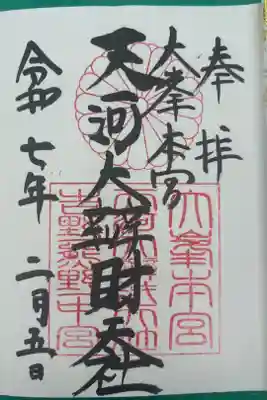 奉拝
大峯本宮
天河大辨財天社
令和七年 二月五日
大峯本宮
吉野熊野中宮